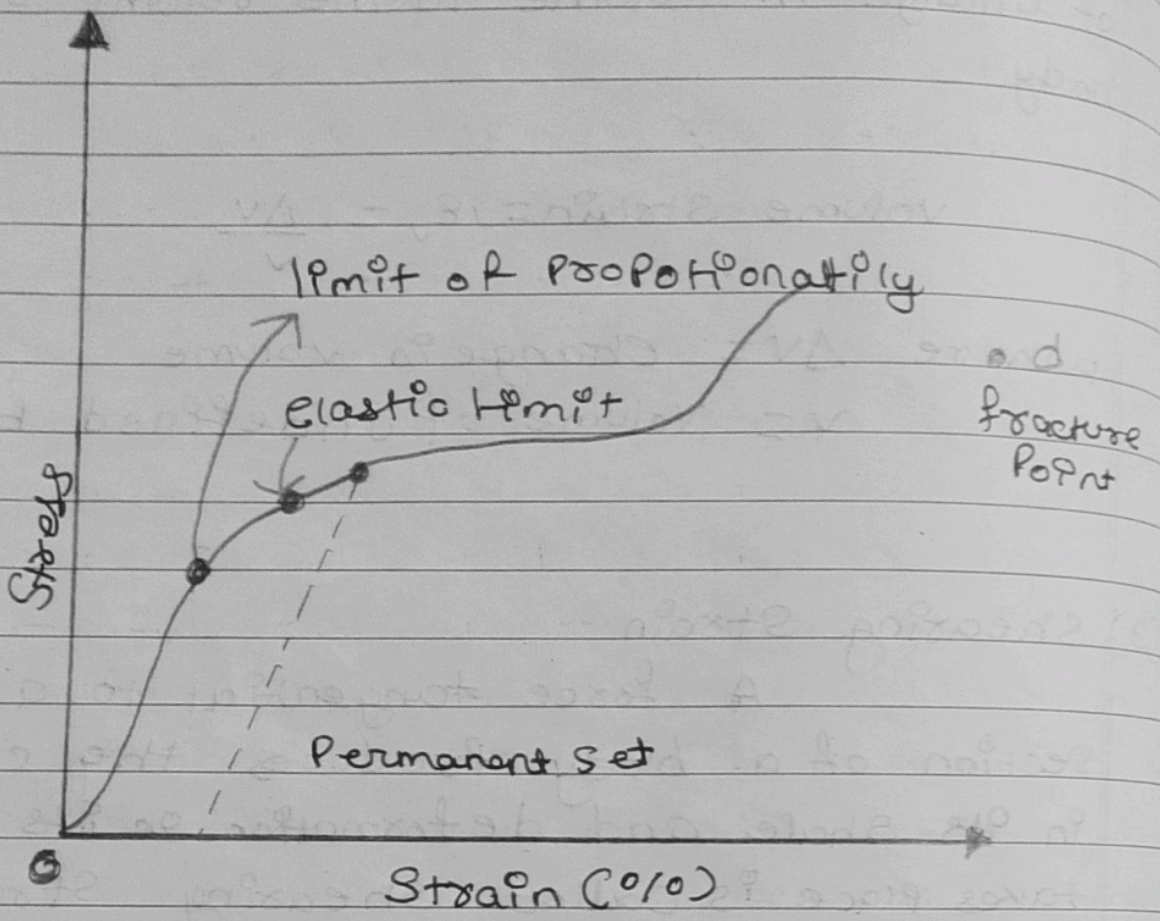 limit of propotionatily
elastic limit
d
fracture
point
Stress
Permanent set
O
Strain (%)